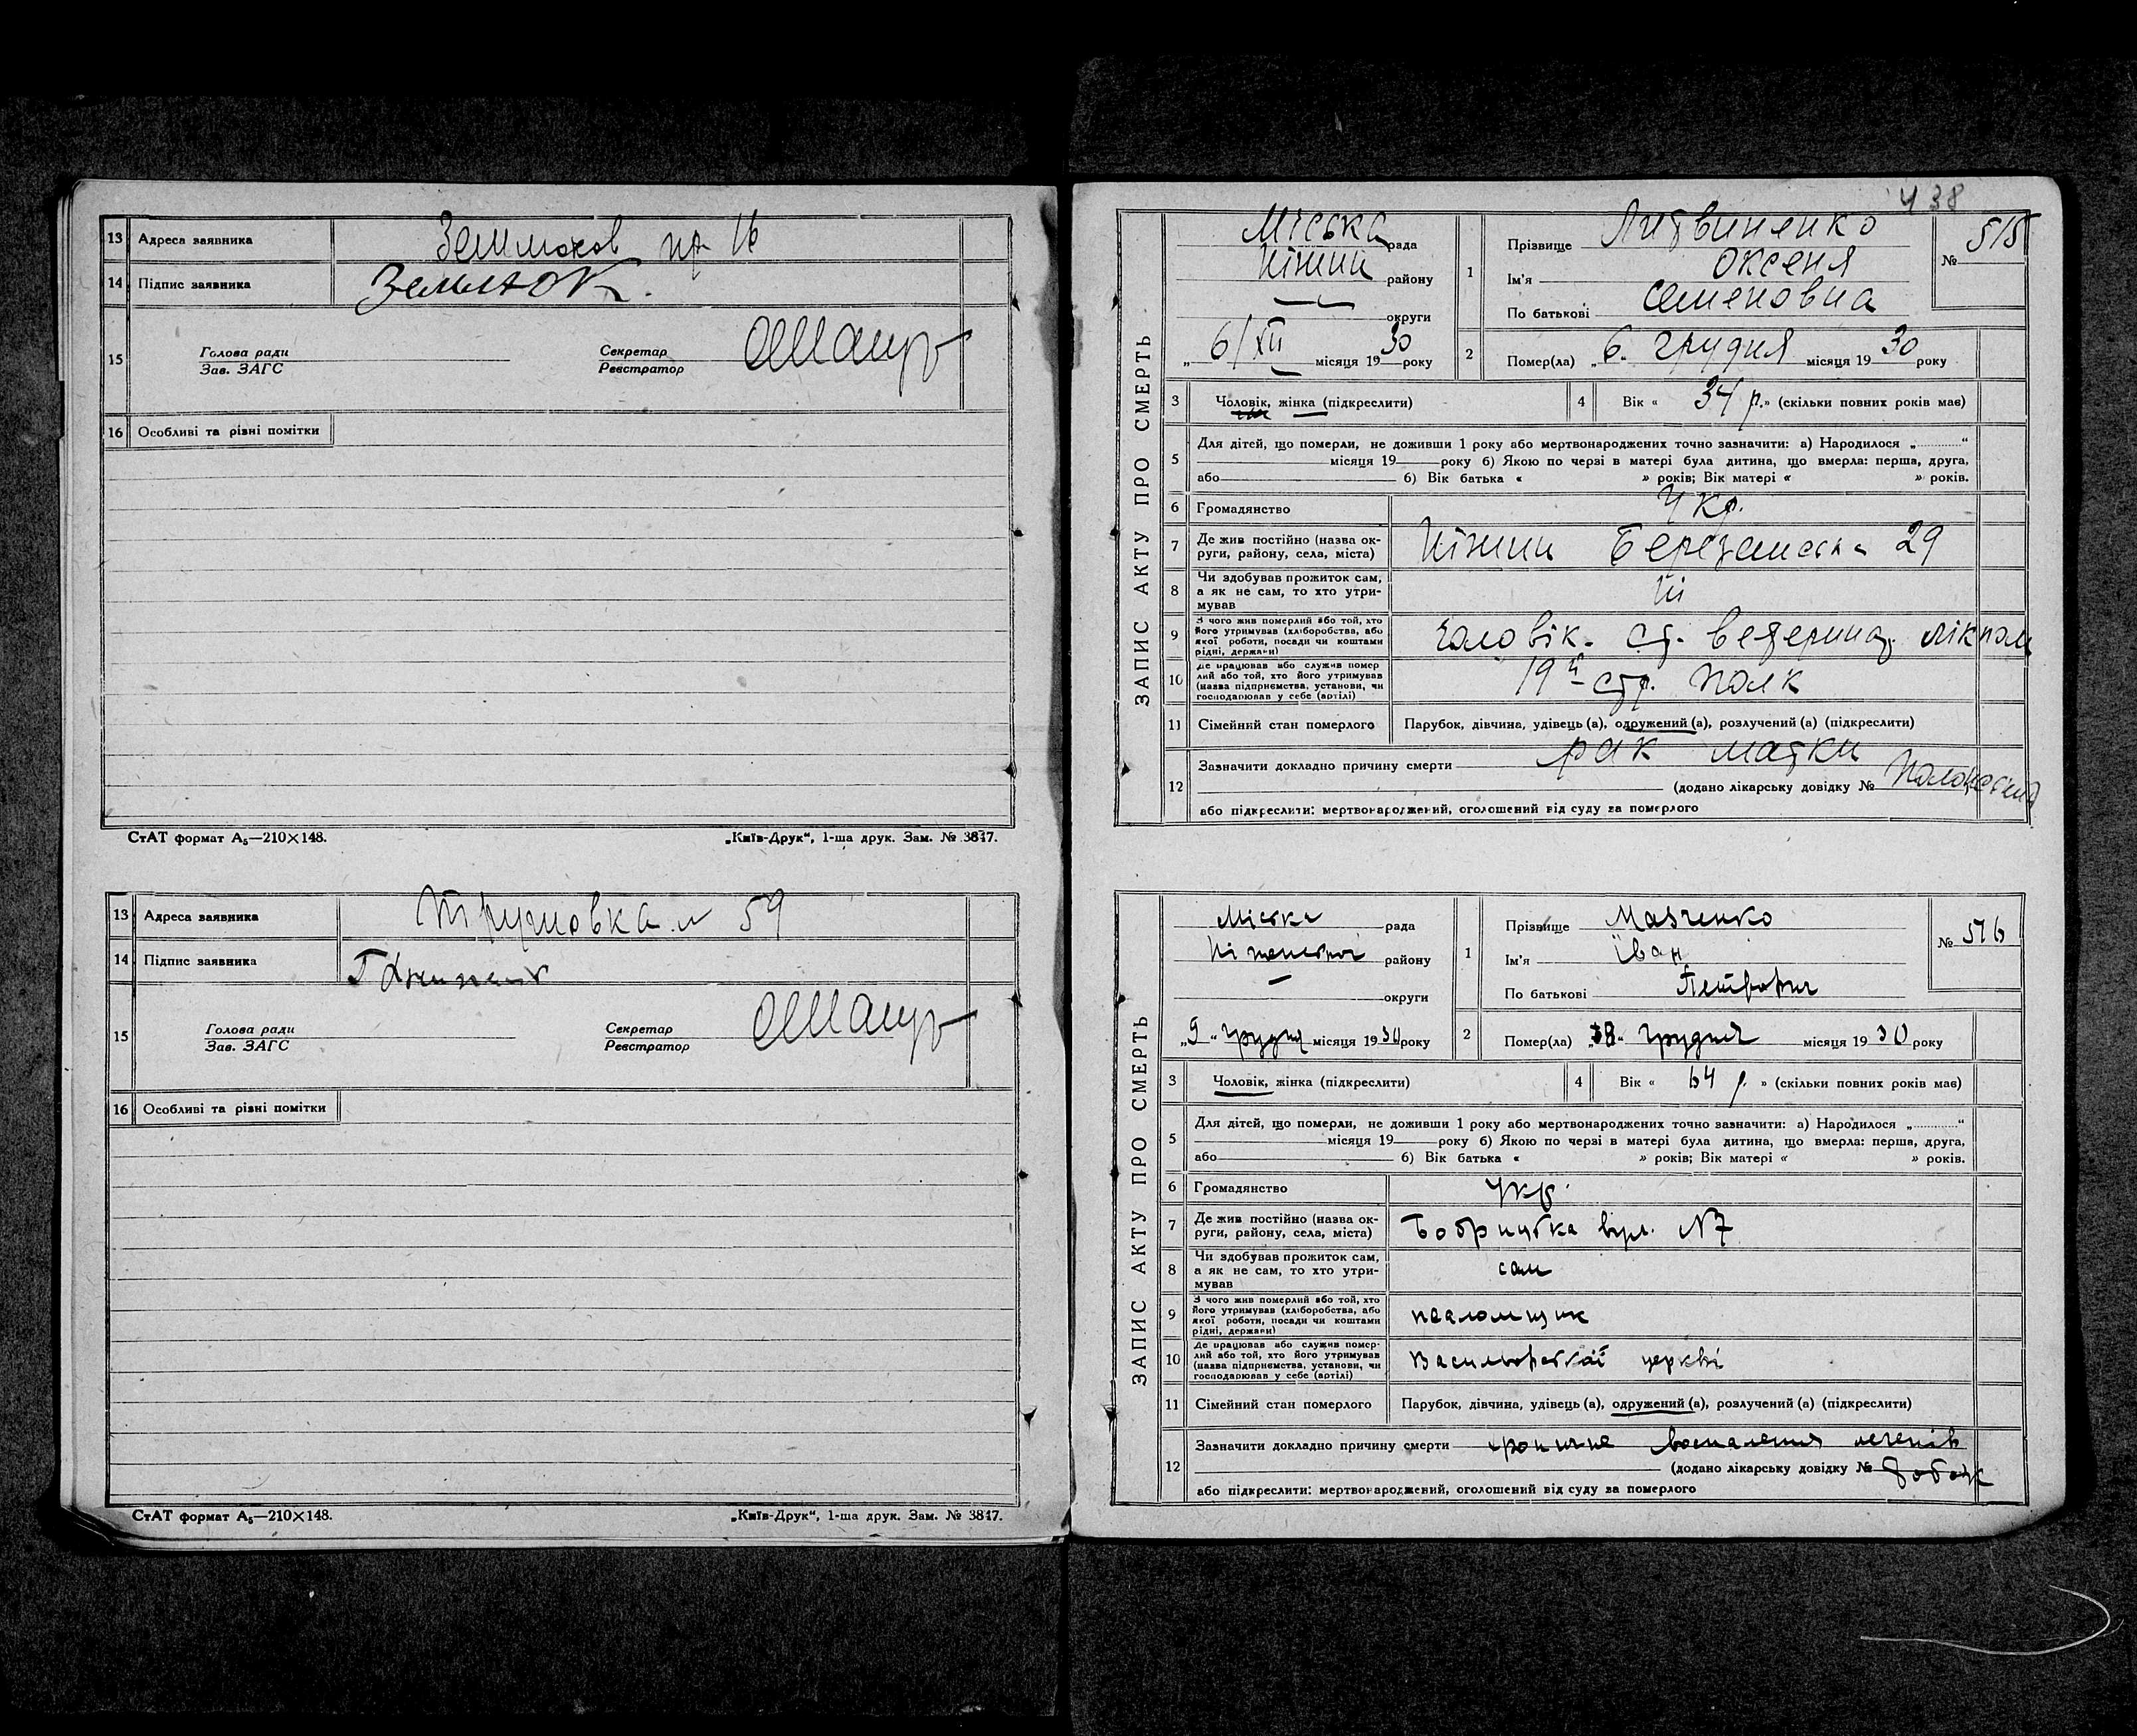 13 Адреса заявника
14 Підпис заявника Землюк
15 Голова ради
Зав. ЗАГС
Секретар
Реєстратор
16 Особливі та різні помітки
СтАТ формат А₅—210×148.
„Київ-Друк“, 1-ша друк. Зам. № 3847.
13 Адреса заявника 59
14 Підпис заявника
15 Голова ради
Зав. ЗАГС
Секретар
Реєстратор
16 Особливі та різні помітки
СтАТ формат А₅—210×148.
„Київ-Друк“, 1-ша друк. Зам. № 3847.
438
ЗАПИС АКТУ ПРО СМЕРТЬ
Міська рада
Ніжин району
округи
„6/XII місяця 1930 року
1 Прізвище Литвиненко
Ім'я Оксеня
По батькові Семеновна
№ 515
2 Помер(ла) „6. грудня місяця 1930 року
3 Чоловік, жінка (підкреслити)
4 Вік « 34 р.» (скільки повних років має)
5 Для дітей, що померли, не доживши 1 року або мертвонароджених точно зазначити: а) Народилося „ “
місяця 19 року б) Якою по черзі в матері була дитина, що вмерла: перша, друга,
або б) Вік батька « » років; Вік матері « » років.
6 Громадянство Укр.
7 Де жив постійно (назва округи, району, села, міста) Ніжин 29
8 Чи здобував прожиток сам, а як не сам, то хто утримував Ні
9 З чого жив померлий або той, хто його утримував (хліборобства, або якої роботи, посади чи коштами рідні, держави) Чоловік. ст. ветеринар. лікпом
10 Де працював або служив помер лий або той, хто його утримував (назва підприємства, установи, чи господарював у себе (артілі) 19й стр. полк
11 Сімейний стан померлого Парубок, дівчина, удівець (а), одружений (а), розлучений (а) (підкреслити)
12 Зазначити докладно причину смерти рак матки
(додано лікарську довідку №
або підкреслити: мертвонароджений, оголошений від суду за померлого
ЗАПИС АКТУ ПРО СМЕРТЬ
Міська рада
району
округи
„9“ грудня місяця 1930 року
1 Прізвище
Ім'я Іван
По батькові Петрович
№ 516
2 Помер(ла) „8“ грудня місяця 1930 року
3 Чоловік, жінка (підкреслити)
4 Вік « 64 р. » (скільки повних років має)
5 Для дітей, що померли, не доживши 1 року або мертвонароджених точно зазначити: а) Народилося „ “
місяця 19 року б) Якою по черзі в матері була дитина, що вмерла: перша, друга,
або б) Вік батька « » років; Вік матері « » років.
6 Громадянство Укр.
7 Де жив постійно (назва округи, району, села, міста) вул. №7
8 Чи здобував прожиток сам, а як не сам, то хто утримував сам
9 З чого жив померлий або той, хто його утримував (хліборобства, або якої роботи, посади чи коштами рідні, держави) псаломщик
10 Де працював або служив померлий або той, хто його утримував (назва підприємства, установи, чи господарював у себе (артілі) церкві
11 Сімейний стан померлого Парубок, дівчина, удівець (а), одружений (а), розлучений (а) (підкреслити)
12 Зазначити докладно причину смерти хронічне воспалення легенів
(додано лікарську довідку №
або підкреслити: мертвонароджений, оголошений від суду за померлого